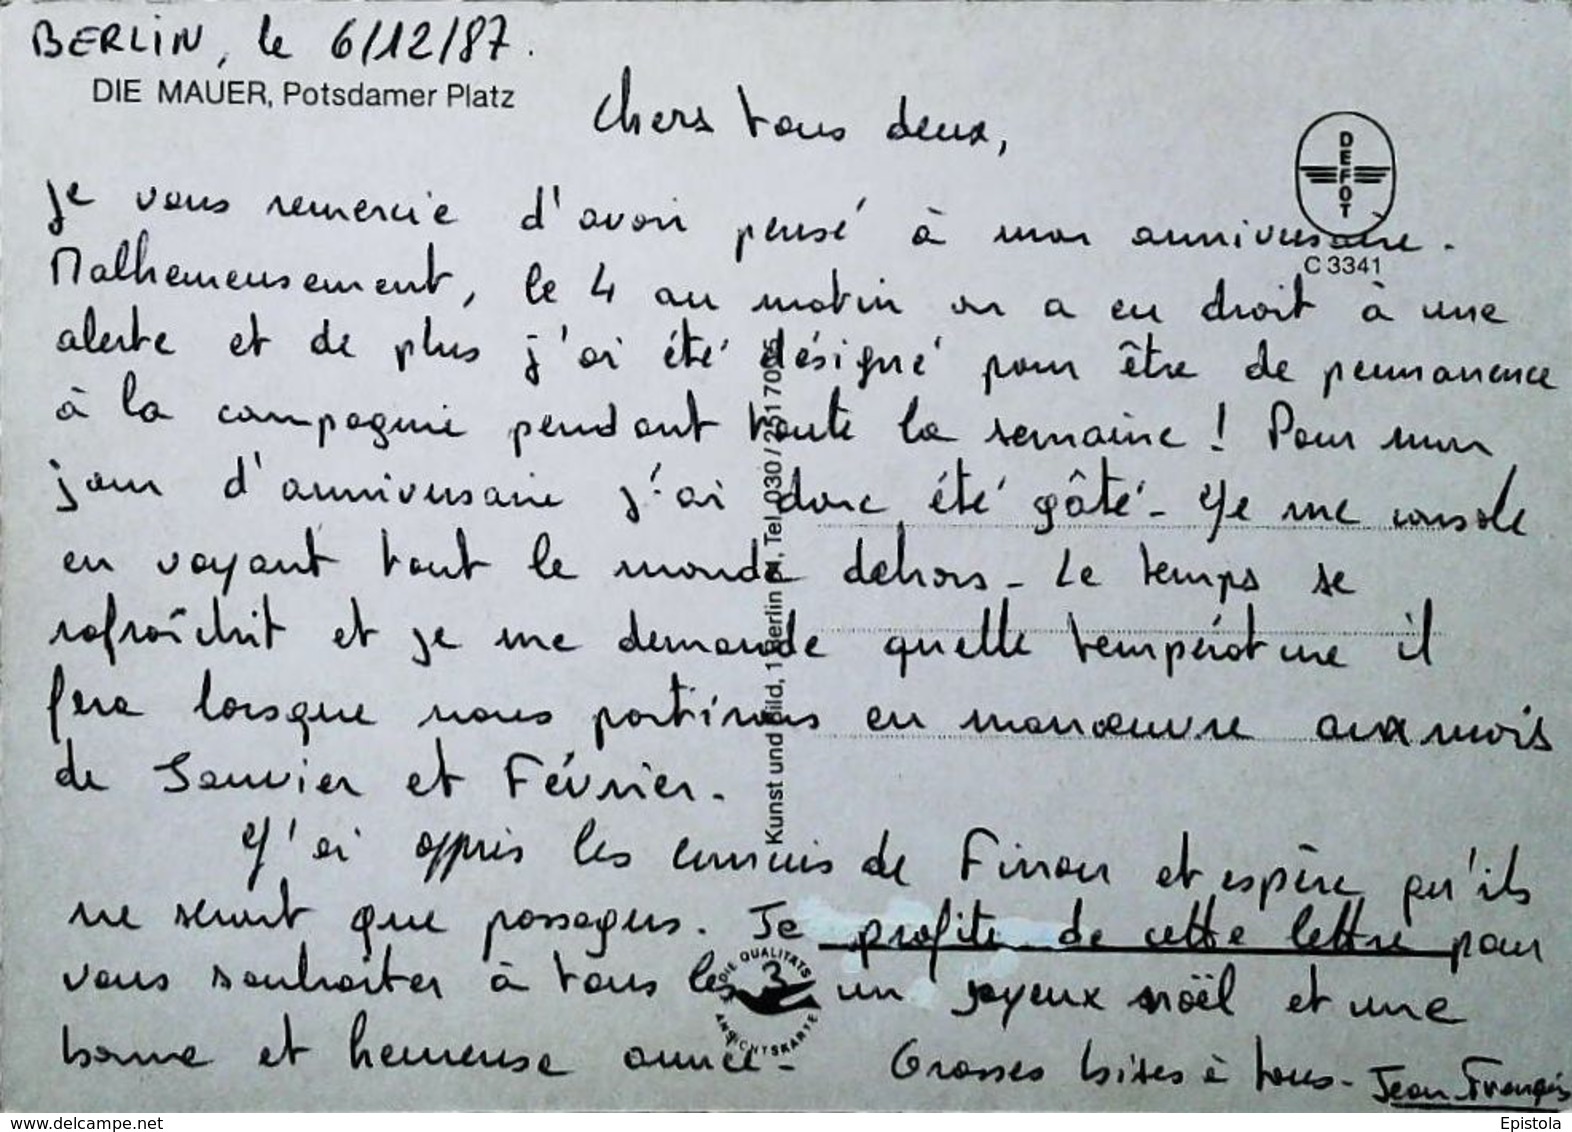 BERLIN, le 6/12/87.
DIE MAUER, Potsdamer Platz
Chers tous deux,
DEFOT
C 3341
je vous remercie d'avoir pensé à mon anniversaire.
Malheureusement, le 4 au matin on a eu droit à une
alerte et de plus j'ai été désigné pour être de permanence
à la compagnie pendant toute la semaine ! Pour mon
jour d'anniversaire j'ai donc été gâté - Je me console
en voyant tout le monde dehors - Le temps se
rafraîchit et je me demande quelle température il
fera lorsque nous partirons en manœuvre aux mois
de Janvier et Février.
J'ai appris les ennuis de et espère qu'ils
ne seront que passagers. Je profite de cette lettre pour
vous souhaiter à tous les 3 un joyeux noël et une
bonne et heureuse année - Grosses bises à tous - Jean François
Kunst und Bild, 1 Berlin Tel. 030 / 251 70
DIE QUALITÄTS ANSICHTSKARTE
www.delcampe.net
Epistola